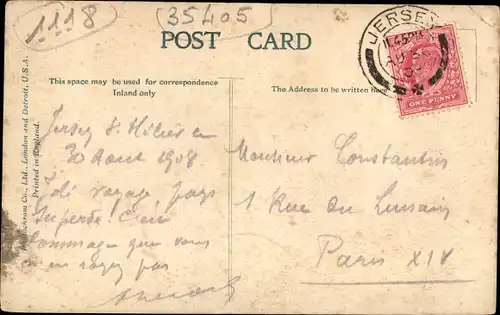 1118
35405
POST CARD
JERSEY
ONE PENNY
This space may be used for correspondence
Inland only
The Address to be written here
Co., Ltd., London and Detroit, U.S.A.
Printed in England.
Jersey St Hélier
30 Aout 1908
voyage, pays
superbe!
Dommage que vous
n'en soyez pas
Monsieur Constantin
1 Rue du Lunain
Paris XIV